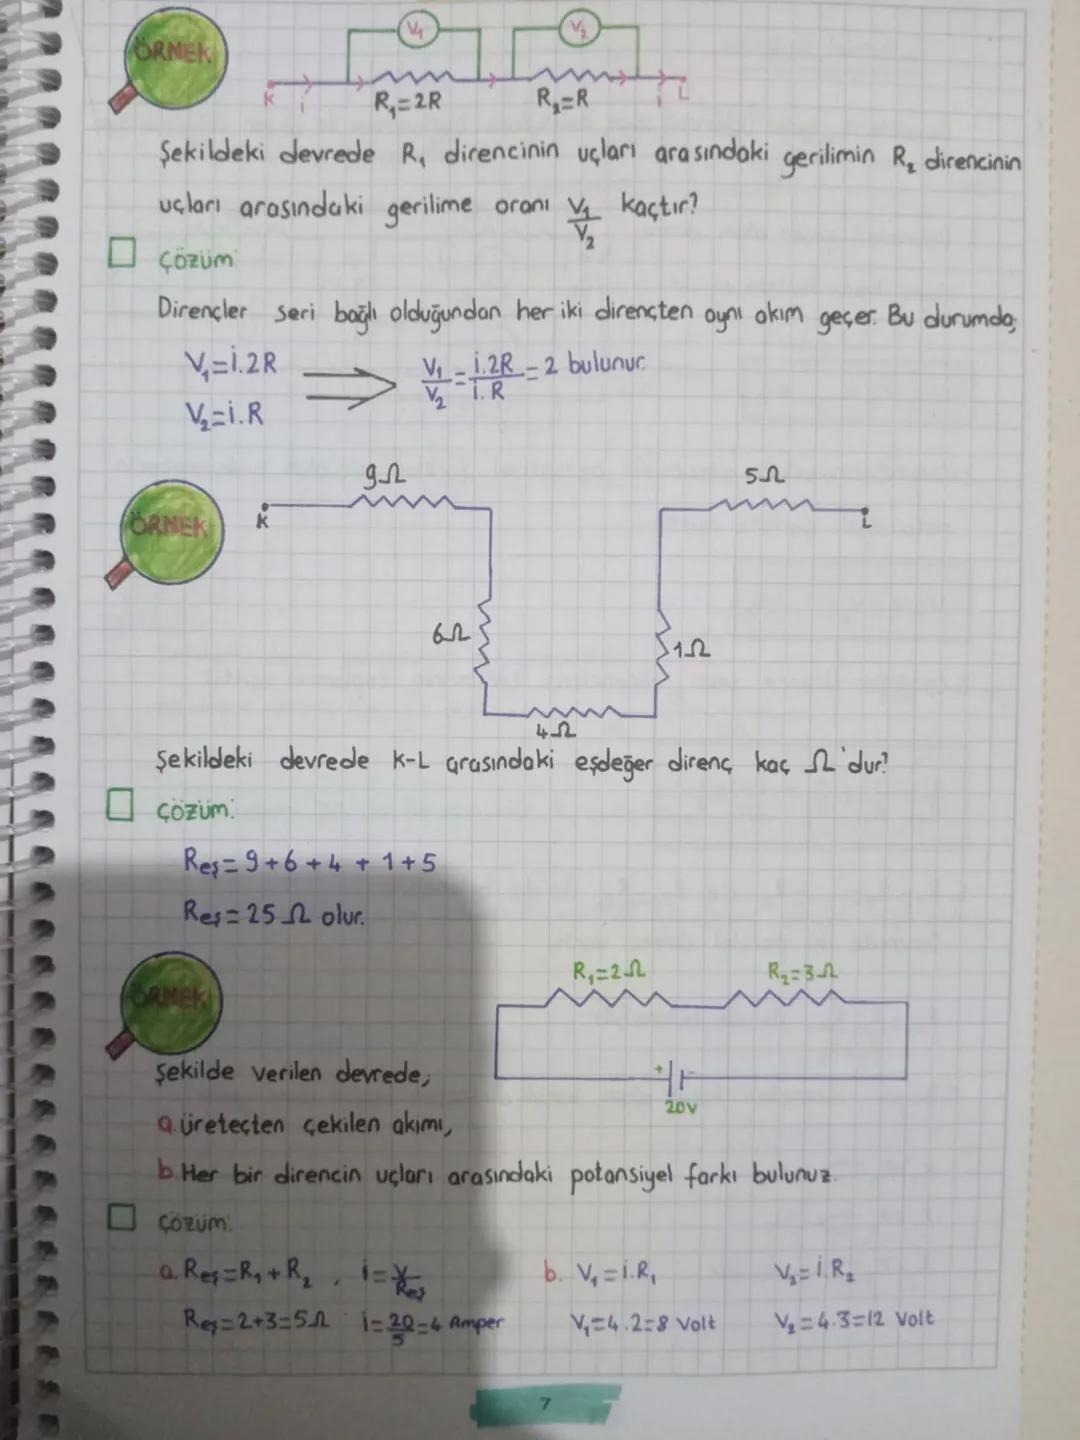 ÖRNEK
V₁ V₂
K i R₁=2R R₂=R i L
Şekildeki devrede R₁ direncinin uçları arasındaki gerilimin R₂ direncinin
uçları arasındaki gerilime oranı V₁/V₂ kaçtır?
Çözüm:
Dirençler seri bağlı olduğundan her iki dirençten aynı akım geçer. Bu durumda;
V₁=i.2R ⟹ V₁/V₂=i.2R/i.R=2 bulunur.
V₂=i.R
ÖRNEK
9Ω 5Ω
K L
6Ω 1Ω
4Ω
Şekildeki devrede K-L arasındaki eşdeğer direnç kaç Ω'dur?
Çözüm:
Reş=9+6+4+1+5
Reş=25Ω olur.
ÖRNEK
R₁=2Ω R₂=3Ω
+ -
20V
Şekilde verilen devrede;
a.üreteçten çekilen akımı,
b.Her bir direncin uçları arasındaki potansiyel farkı bulunuz.
Çözüm:
a. Reş=R₁+R₂, i=V/Reş b. V₁=i.R₁ V₂=i.R₂
Reş=2+3=5Ω i=20/5=4 Amper V₁=4.2=8 Volt V₂=4.3=12 Volt
7